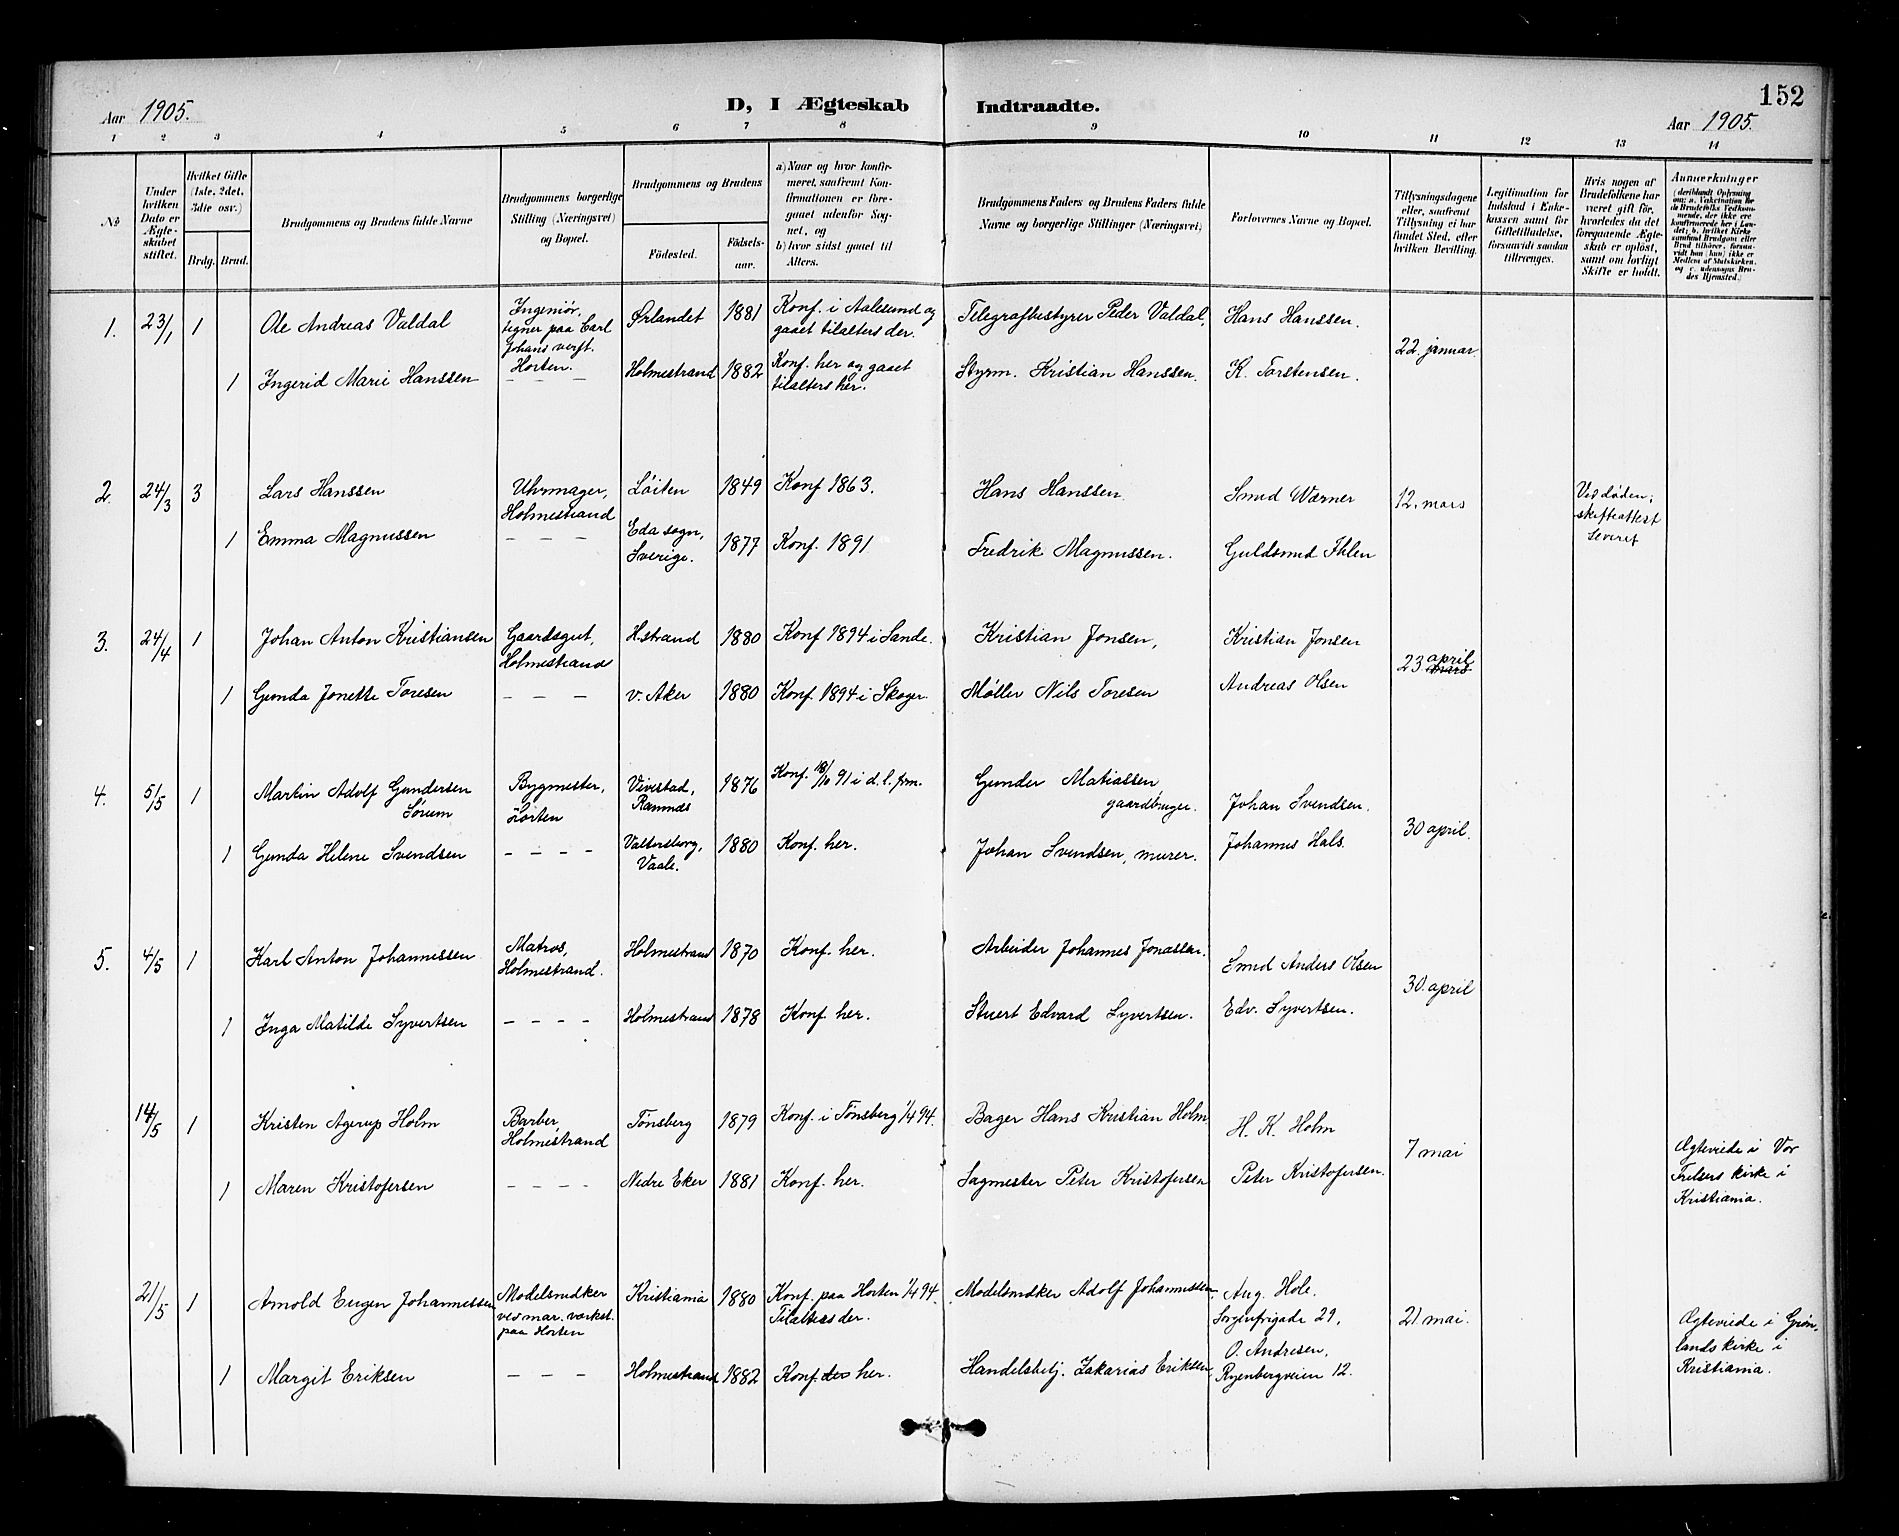 152
Aar 1905.
D, I Ægteskab Indtraadte.
Aar 1905.
1 2 3 4 5 6 7 8 9 10 11 12 13 14
No
Under hvilken Dato er Ægteskabet stiftet.
Hvilket Gifte (1ste, 2det, 3die osv.)
Brdg. Brud.
Brudgommens og Brudens fulde Navne
Brudgommens borgerlige Stilling (Næringsvei) og Bopæl.
Brudgommens og Brudens
Födested. Födselsaar.
a) Naar og hvor konfirmeret, saafremt Konfirmationen er foregaaet udenfor Sognet, og
b) hvor sidst gaaet til Alters.
Brudgommens Faders og Brudens Faders fulde Navne og borgerlige Stillinger (Næringsvei)
Forlovernes Navne og Bopæl.
Tillysningsdagene eller, saafremt Tillysning ei har fundet Sted, efter hvilken Bevilling.
Legitimation for Indskud i Enkekassen samt for Giftetilladelse, forsaavidt saadan tiltrænges.
Hvis nogen af Brudefolkene har været gift för, hvorledes da det foregaaende Ægteskab er oplöst, samt om lovligt Skifte er holdt.
Anmerkninger
(deriblandt Oplysning om: a. Vakcination for de Brudefolks Vedkommende, der ikke ere konfirmerede her i Landet; b. hvilket Kirkesamfund Brudgom eller Brud tilhörer, forsaavidt han (hun) ikke er Medlem af Statskirken, og c. udensogns Brudes Hjemsted.)
1. 23/1 1 Ole Andreas Valdal
Ingeniør, tegner paa Carl Johans verft. Horten.
Ørlandet 1881 Konf. i Aalesund og gaaet tilalters der.
Telegrafbestyrer Peder Valdal, Hans Hanssen.
22. januar
1 Ingerid Marie Hanssen – – – Holmestrand 1882 Konf. her og gaaet tilalters her.
Styrm. Kristian Hanssen. K. Torstensen.
2. 24/3 3 Lars Hanssen Uhrmager, Holmestrand Løiten 1849 Konf 1863.
Hans Hanssen. Smed Warner 12. mars
Ved døden; skifteattest leveret
1 Emma Magnussen – – – Eda sogn, Sverige. 1877 Konf. 1891
Fredrik Magnussen. Guldsmed Ihlen
3. 24/4 1 Johan Anton Kristiansen Gaardsgut, Holmestrand H.strand 1880 Konf 1894 i Sande.
Kristian Jonsen, Kristian Jonsen
23 april mars
1 Gunda Jonette Toresen – – – v. Aker 1880 Konf. 1894 i Skoger.
Møller Nils Toresen Andreas Olsen
4. 5/5 1 Martin Adolf Gundersen Sørum Bygmester, Horten Vivestad, Ramnæs 1876 Konf. 18/10 91 i d. l. frm.
Gunder Matiassen gaardbruger. Johan Svendsen.
30 april.
1 Gunda Helene Svendsen – – – – Valtersborg, Vaale. 1880 Konf. her.
Johan Svendsen, murer. Johannes Hals.
5. 4/5 1 Karl Anton Johannessen Matros, Holmestrand. Holmestrand 1870 Konf. her.
Arbeider Johannes Jonassen. Smed Anders Olsen
30. april
1 Inga Matilde Syvertsen – – – – Holmestrand 1878 Konf. her.
Stuert Edvard Syvertsen. Edv. Syvertsen.
14/5 1 Kristen Agerup Holm Barber, Holmestrand Tønsberg 1879 Konf. i Tønsberg 1/4 94.
Bager Hans Kristian Holm. H. K. Holm
7 mai
1 Maren Kristofersen – – – – Nedre Eker 1881 Konf. her.
Sagmester Peter Kristofersen Peter Kristofersen.
Ægteviede i Vor Frelsers kirke i Kristiania.
21/5 1 Arnold Eugen Johannessen Modelsnedker ved mar. værkst. paa Horten Kristiania 1880 Konf. paa Horten 1/4 94. Tilalters der.
Modelsnedker Adolf Johannessen. Aug. Hole. Sorgenfrigade 29,
21 mai.
1 Margit Eriksen – – – Holmestrand 1882 Konf. der her.
Handelsbetj. Zakarias Eriksen, O. Andresen, Ryenbergveien 12.
Ægteviede i Grønlands kirke i Kristiania.